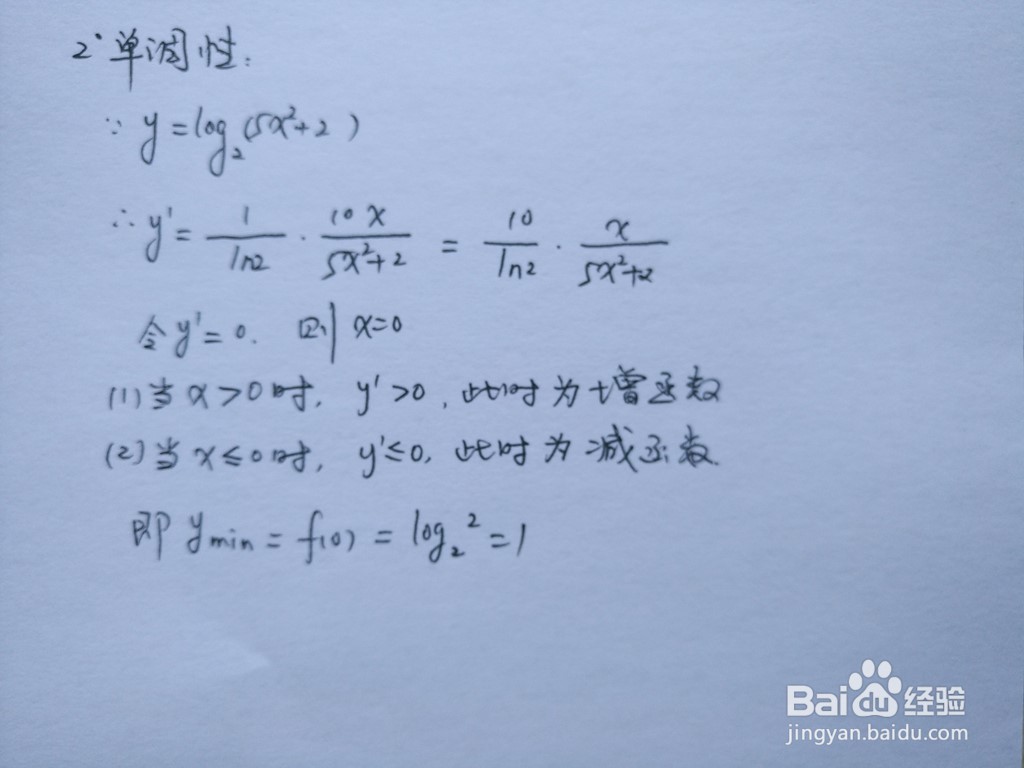 2°单调性:
∵ y=log₂(5x²+2)
∴ y'= 1/ln2 · 10x/(5x²+2) = 10/ln2 · x/(5x²+2)
令y'=0. 则x=0
(1)当x>0时, y'>0, 此时为增函数
(2)当x≤0时, y'≤0, 此时为减函数.
即 ymin=f(0)=log₂²=1
Bai du 经验
jingyan.baidu.com